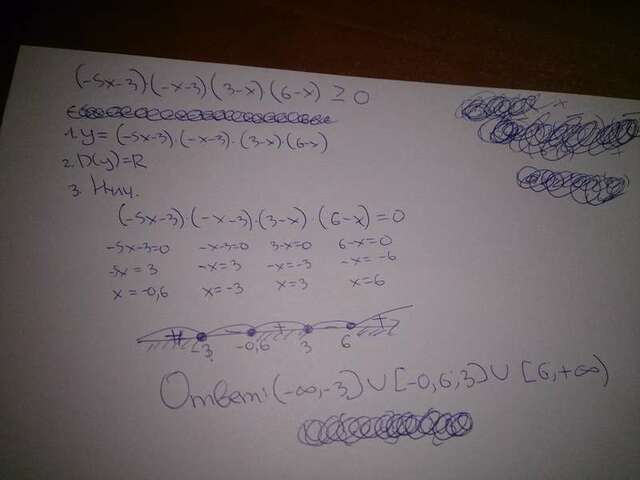 (-5x-3)·(-x-3)(3-x)(6-x) ≥ 0
1. y = (-5x-3)·(-x-3)·(3-x)·(6-x)
2. D(y)=R
3. Н.ф.
(-5x-3)·(-x-3)·(3-x)·(6-x)=0
-5x-3=0 -x-3=0 3-x=0 6-x=0
-5x=3 -x=3 -x=-3 -x=-6
x=-0,6 x=-3 x=3 x=6
+ - + - +
-3 -0,6 3 6
Ответ: (-∞,-3]∪[-0,6;3]∪[6,+∞)